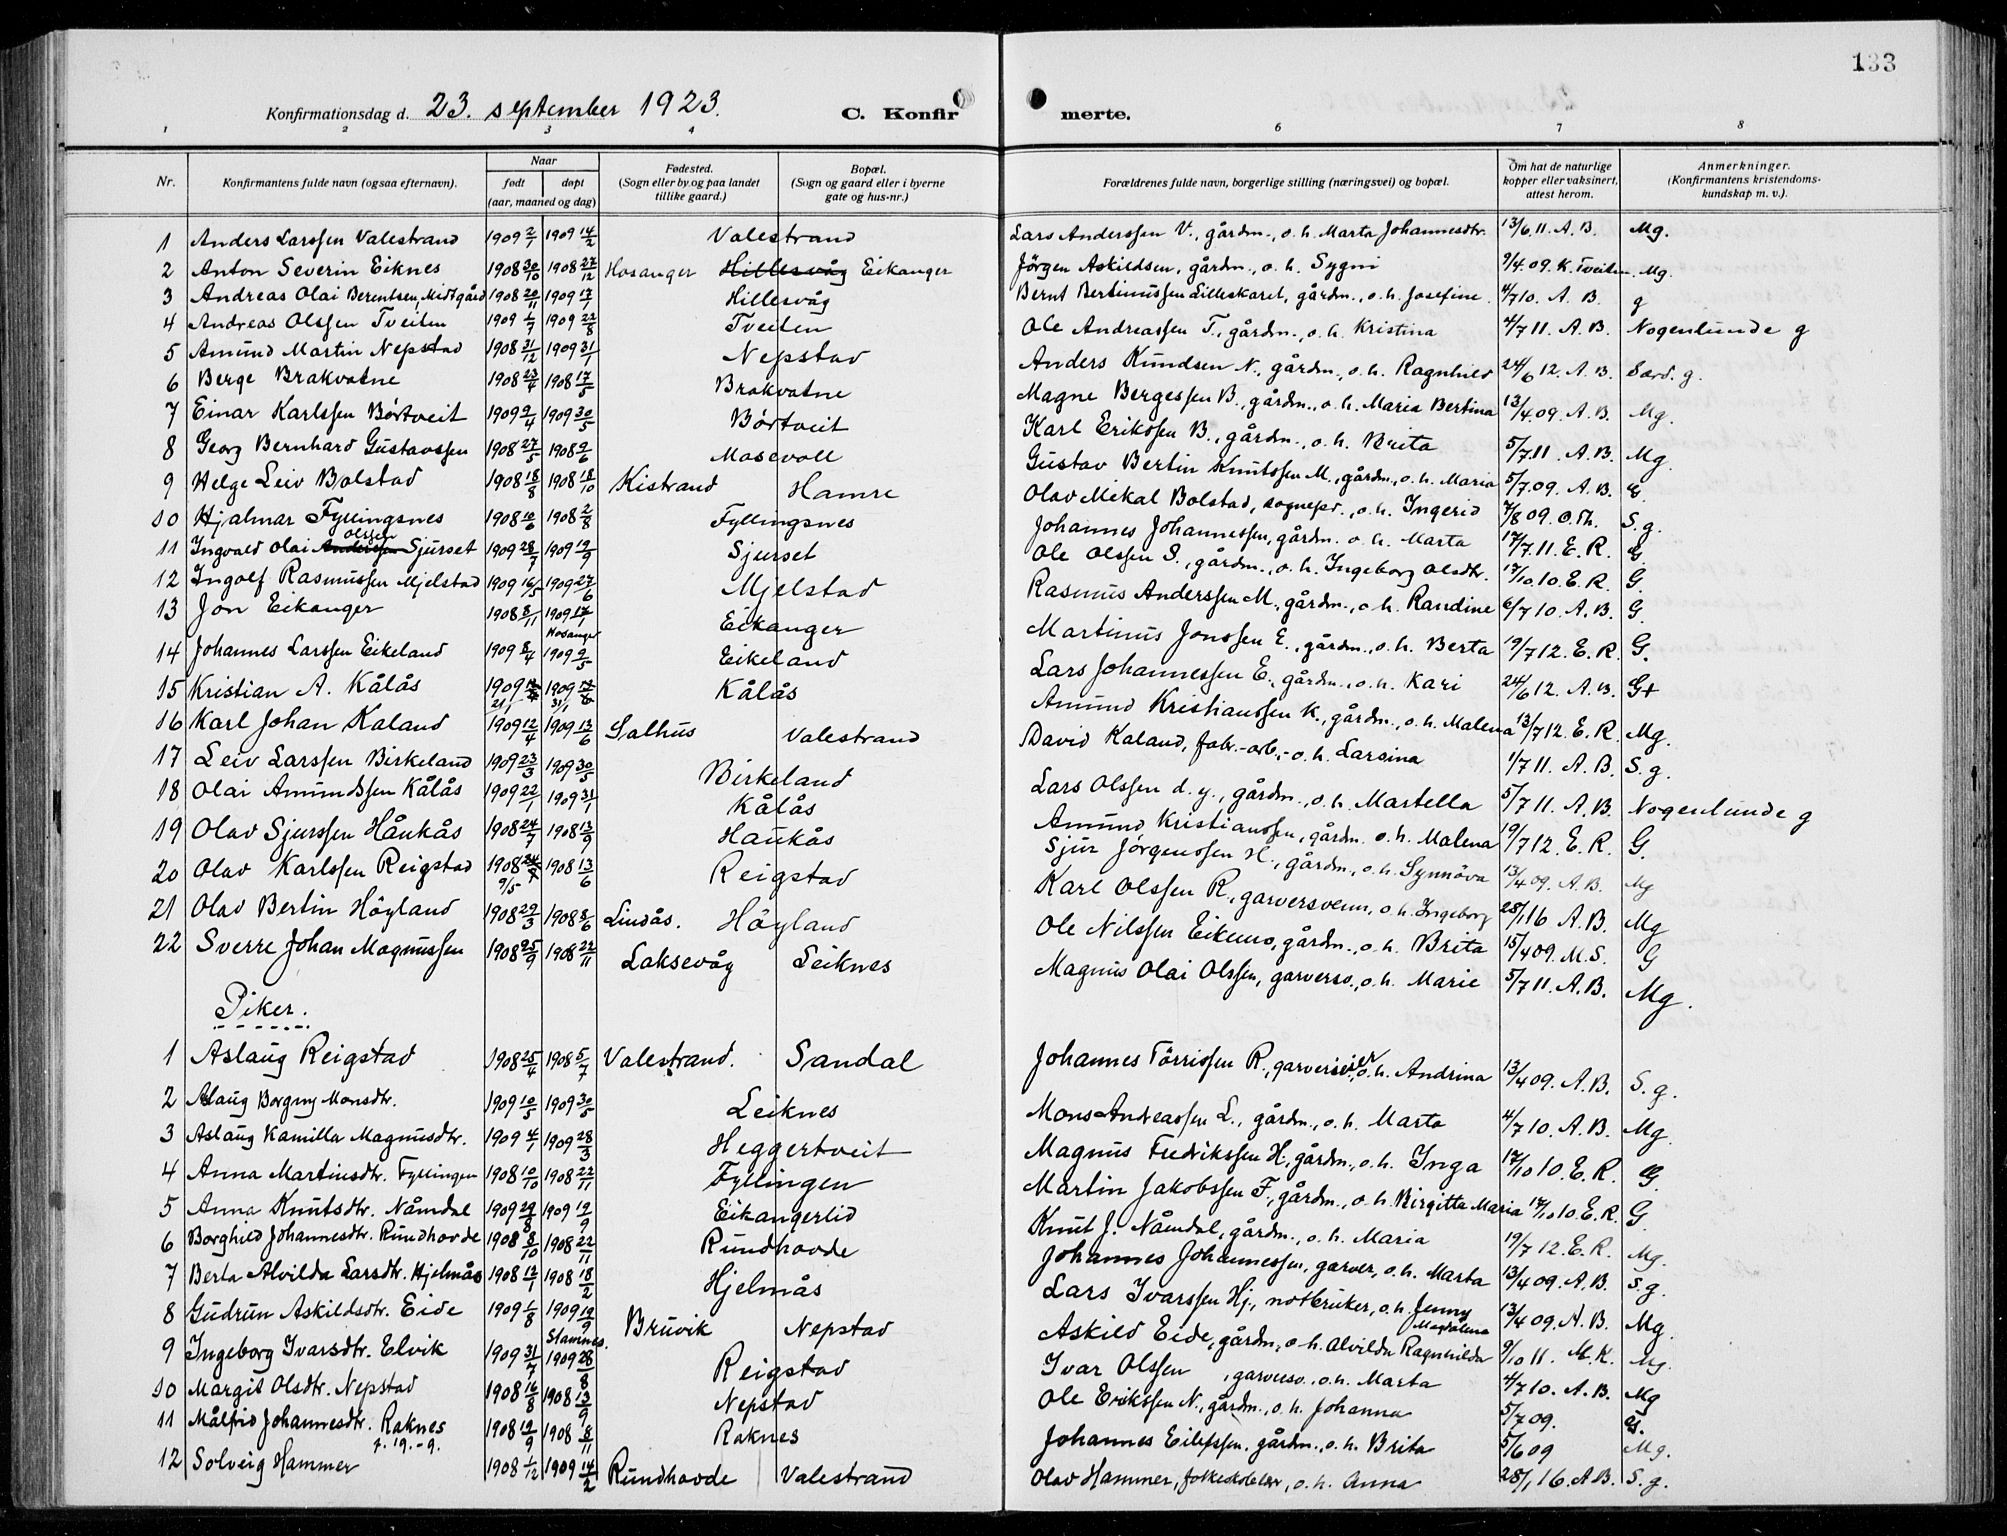 133
Konfirmationsdag d. 23. september 1923. C. Konfirmerte.
1 2 3 4 6 7 8
Nr. Konfirmantens fulde navn (ogsaa efternavn). Naar født døpt (aar, maaned og dag) Fødested. (Sogn eller by og paa landet tillike gaard.) Bopæl. (Sogn og gaard eller i byerne gate og hus-nr.) Forældrenes fulde navn, borgerlige stilling (næringsvei) og bopæl. Om hat de naturlige kopper eller vaksinert, attest herom. Anmerkninger. (Konfirmantens kristendoms-kundskap m. v.).
1 Anders Larssen Valestrand 1909 2/1 1909 14/2 Valestrand Lars Anderssen V., gårdm., o. h. Marta Johannesdtr. 13/6.11. A. B. Mg.
2 Anton Severin Eiknes 1908 30/10 1908 27/12 Hosanger Hillesvåg Eikanger Jörgen Askildsen, gårdm., o. h. Sygni 9/4.09. K. Tveiten. Mg.
3 Andreas Olai Berentsen, Midtgård 1908 20/11 1909 17/1 Hillesvåg Bernt Bertinussen Lilleskaret, gårdm., o. h. Josefine. 4/7 10. A. B. g
4 Andreas Olssen Tveiten 1909 1/7 1909 22/8 Tveiten Ole Andreassen T., gårdm., o. h. Kristina 4/7 11. A. B. Nogenlunde g
5 Amund Martin Nepstad 1908 31/12 1909 31/1 Nepstad Anders Knudsen N., gårdm., o. h. Ragnhild 24/6 12. A. B. Særd. g.
6 Berge Brakvatne 1908 23/4 1908 17/5 Brakvatne Magne Bergessen B., gårdm., o. h. Maria Bertina 13/4.09. A. B. Mg.
7 Einar Karlssen Börtveit 1909 9/4 1909 30/5 Börtveit Karl Erikssen B., gårdm., o. h. Brita 5/7.11. A. B. Mg.
8 Georg Bernhard Gustavssen 1908 27/5 1908 9/6 Mosevoll Gustav Bertin Knutssen M., gårdm., o. h. Maria 5/7.09. A. B. G.
9 Helge Leiv Bolstad 1908 18/8 1908 18/10 Kistrand Hamre Olav Mikal Bolstad, sognepr., o. h. Ingerid 7/8 09. O. Th. S. g.
10 Hjalmar Fyllingsnes 1908 10/6 1908 2/8 Fyllingsnes Johannes Johannessen, gårdm. o. h. Marta 17/7.11. E. R. G.
11 Ingvald Olai Anderssen Olssen Sjurset 1909 28/7 1909 19/9 Sjurset Ole Olssen S., gårdm., o. h. Ingeborg Olsdtr. 17/10.10. E. R. G.
12 Ingolf Rasmussen Mjelstad 1909 16/5 1909 27/6 Mjelstad Rasmus Anderssen M., gårdm., o. h. Randine 6/7 10. A. B. G.
13 Jon Eikanger 1908 8/11 1909 17/1 Hosanger Eikanger Martinus Jonssen E., gårdm., o. h. Berta 19/7 12. E. R. G.
14 Johannes Larssen Eikeland 1909 8/4 1909 9/5 Eikeland Lars Johannessen E., gårdm., o. h. Kari 24/6 12. A. B. G+
15 Kristian A. Kålås 1909 21/1 1909 31/1 Kålås Amund Kristianssen K., gårdm., o. h. Malena 13/7 12. E. R. Mg.
16 Karl Johan Kaland 1909 12/4 1909 13/6 Salhus Valestrand David Kaland, fabr.-arb., o. h. Larsina 1/7 11. A. B. S. g.
17 Leiv Larssen Birkeland 1909 23/3 1909 30/5 Birkeland Lars Olssen d. y., gårdm., o. h. Martella 5/7 11. A. B. Nogenlunde g
18 Olai Amundssen Kålås 1909 22/1 1909 31/1 Kålås Amund Kristianssen, gårdm. o. h. Malena 19/7 12. E. R. G.
19 Olav Sjurssen Håukås 1908 24/7 1908 13/9 Haukås Sjur Jörgenssen H., gårdm., o. h. Synnöva 13/4 09. A. B. Mg
20 Olav Karlssen Reigstad 1908 9/5 1908 13/6 Reigstad Karl Olssen R., garversvenn, o. h. Ingeborg 28/1 16 A. B. Mg
21 Olav Bertin Höyland 1908 29/3 1908 8/6 Lindås. Höyland Ole Nilssen Eikemo, gårdm., o. h. Brita 15/4 09. M. S. G
22 Sverre Johan Magnussen 1908 25/9 1908 22/11 Laksevåg Leiknes Magnus Olai Olssen, garversv., o. h. Marie 5/7 11. A. B. Mg.
Piker.
1 Aslaug Reigstad 1908 25/4 1908 5/7 Valestrand. Sandal Johannes Törrissen R., garverieier, o. h. Andrina 13/4 09. A. B. S. g.
2 Aslaug Borgny Monsdtr. 1909 10/5 1909 30/5 Leiknes Mons Andreassen L., gårdm., o. h. Marta 4/7 10. A. B. Mg.
3 Aslaug Kamilla Magnusdtr. 1909 4/1 1909 28/3 Heggertveit Magnus Fredrikssen H., gårdm., o. h. Inga 17/10 10. E. R. G.
4 Anna Martinsdtr. Fyllingen 1908 10/10 1908 22/11 Fyllingen Martin Jakobssen F., gårdm., o. h. Birgitta Maria 17/10 10. E. R. G
5 Anna Knutsdtr. Nåmdal 1909 29/8 1909 19/9 Eikangerlid Knut J. Nåmdal, gårdm., o. h. Maria 19/7 12. E. R. Mg.
6 Borghild Johannesdtr. Rundhovde 1908 8/10 1908 22/11 Rundhovde Johannes Johannessen, garver, o. h. Marta 13/4 09. A. B. S. g.
7 Berta Alvilda Larsdtr. Hjelmås 1908 12/1 1908 18/2 Hjelmås Lars Ivarssen Hj., notbruker, o. h. Jenny Magdalena 13/4 09. A. B. Mg.
8 Gudrun Askildsdtr. Eide 1909 1/8 1909 19/9 Stamnes. Bruvik Nepstad Askild Eide, gårdm., o. h. Alvilda Ragnhilda 9/10 11. M. K. Mg.
9 Ingeborg Ivarsdtr. Elvik 1909 31/7 1909 28/8 Reigstad Ivar Olssen, garversv., o. h. Marta 4/7 10. A. B. Mg
10 Margit Olsdtr. Nepstad 1908 16/8 1908 13/9 Nepstad Ole Erikssen N., gårdm., o. h. Johanna 5/7 09. G.
11 Målfrid Johannesdtr. Raknes f. 19.-9. 1908 19/9 1908 8/11 Raknes Johannes Eilefssen, gårdm., o. h. Brita 5/6 09 Mg.
12 Solveig Hammer 1908 1/12 1909 14/2 Rundhovde Valestrand Olav Hammer, folkeskolelær, o. h. Anna 28/1 16. A. B. S. g.